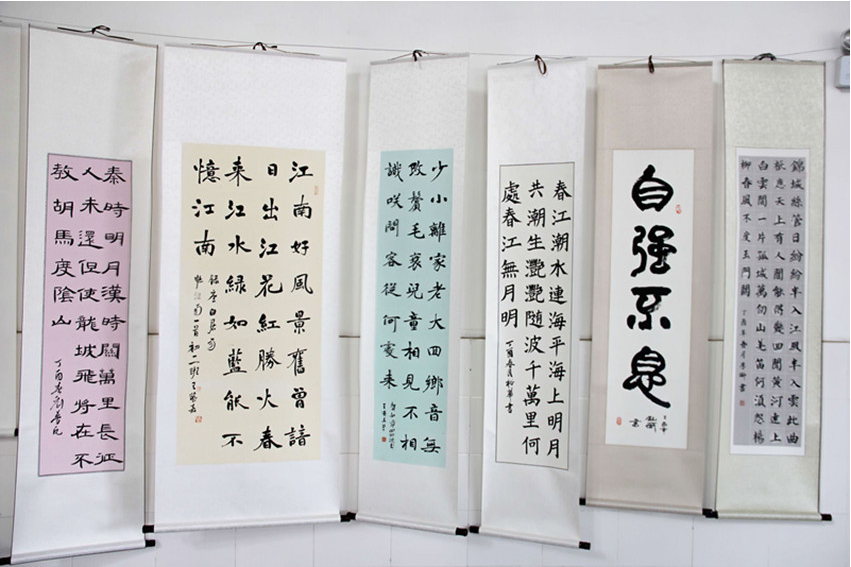 秦時明月漢時關萬里長征
人未還但使龍城飛將在不
教胡馬度陰山
丁酉春
江南好風景舊曾諳
日出江花紅勝火春
来江水綠如藍能不
憶江南
錄唐白居易
憶江南一首初一二班
少小離家老大回鄉音無
改鬢毛衰兒童相見不相
識咲問客從何處来
春江潮水連海平海上明月
共潮生灩灩随波千萬里何
處春江無月明
丁酉春月柳華書
自强不息
錦城絲管日紛紛半入江風半入雲此曲
祇應天上有人間能得幾回聞黃河遠上
白雲間一片孤城萬仞山羌笛何須怨楊
柳春風不度玉門關
丁酉年春月